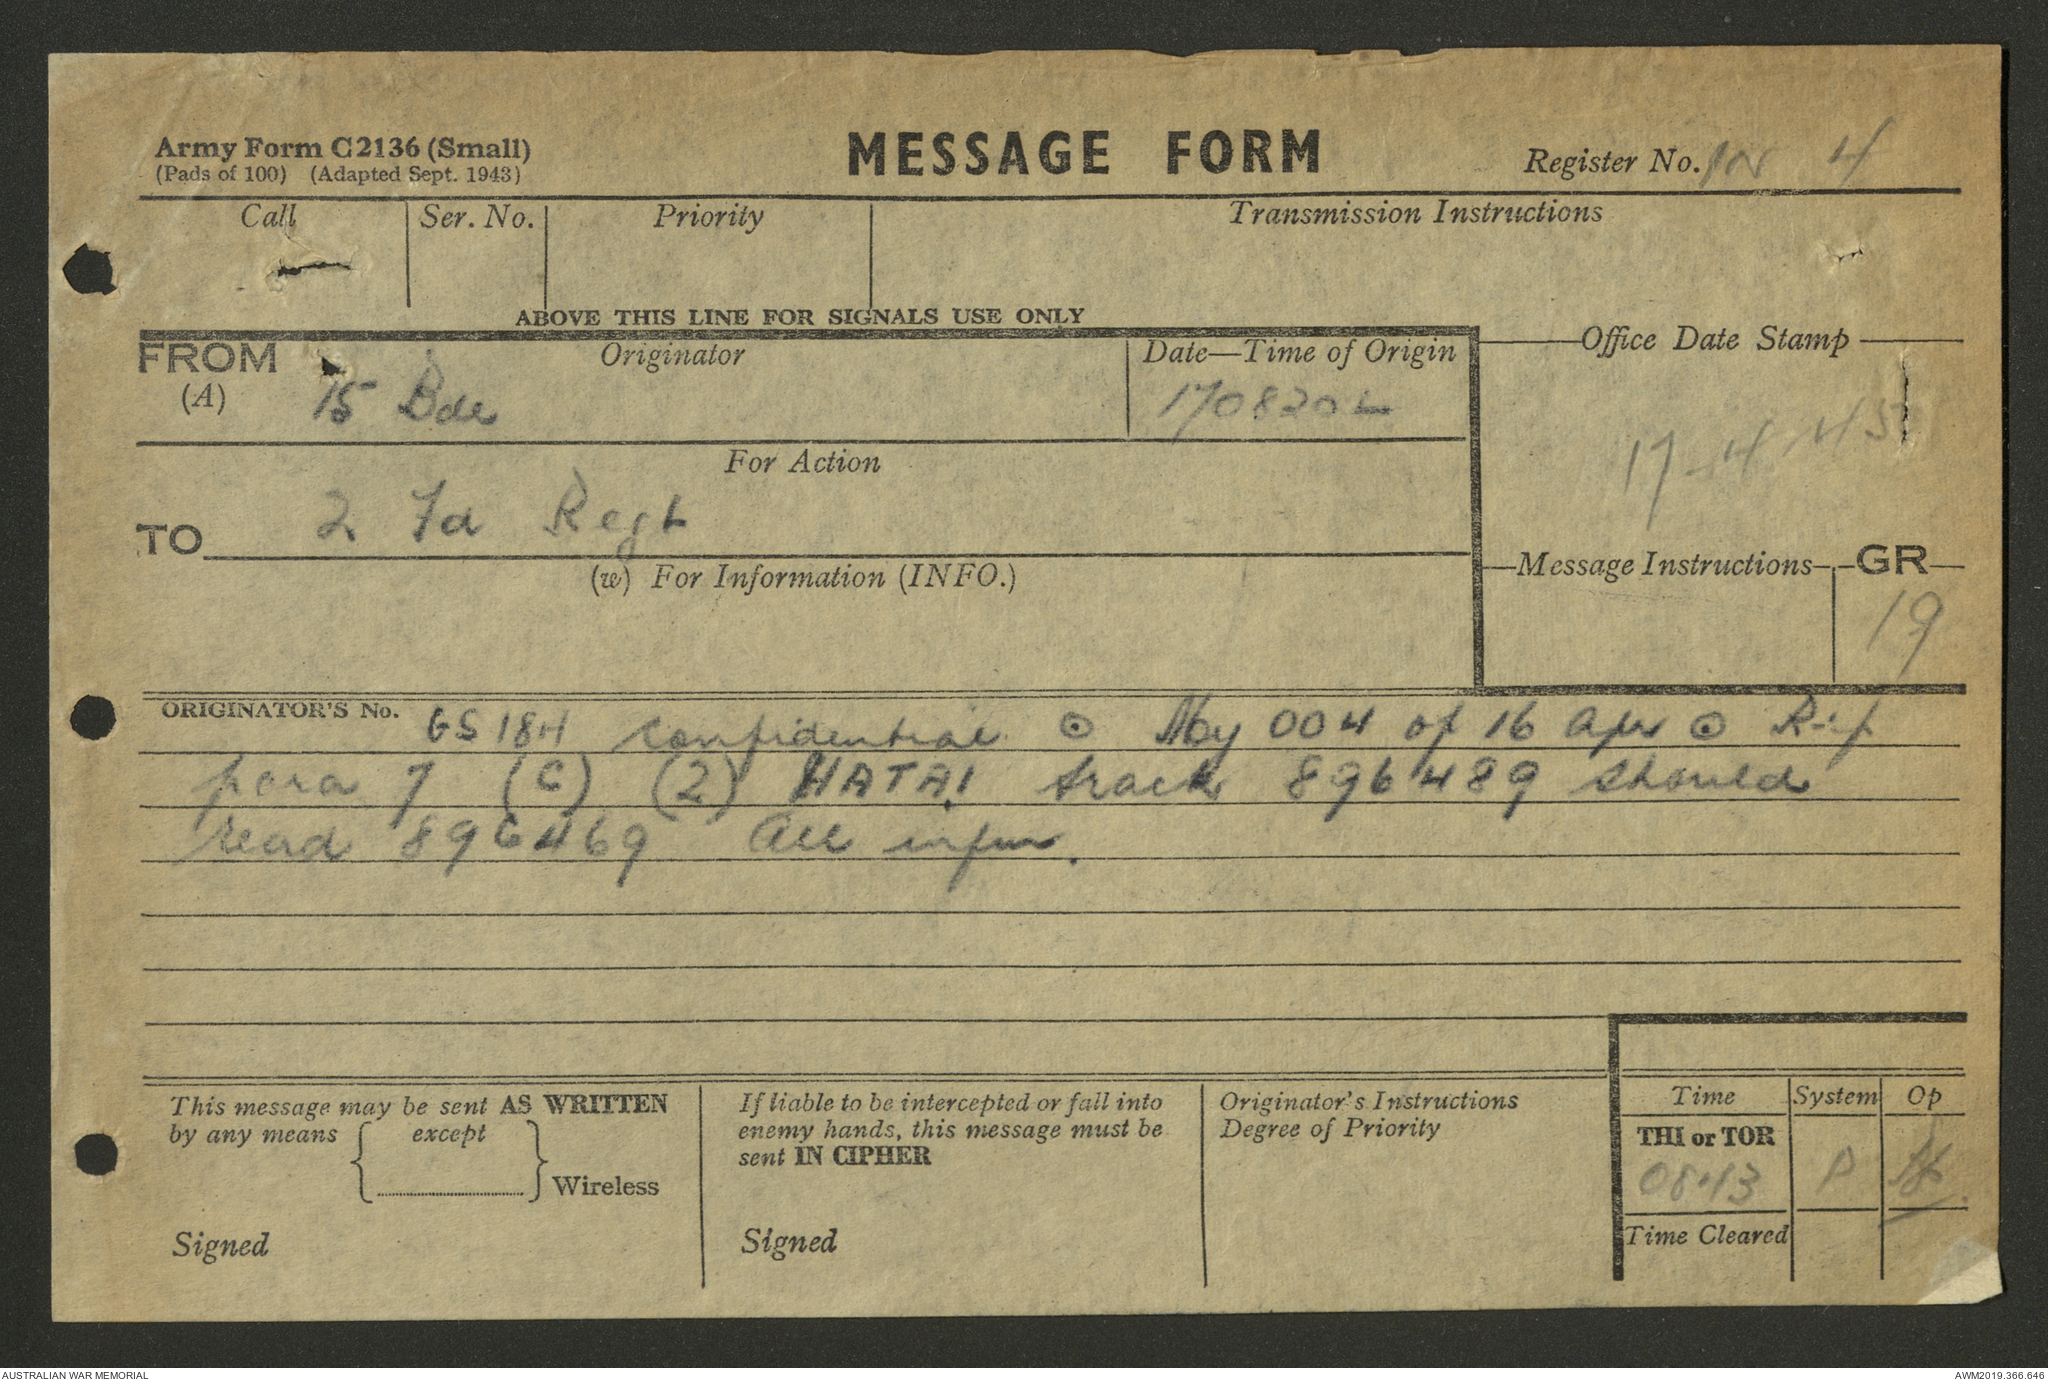 Army Form C2136 (Small)
(Pads of 100) (Adapted Sept. 1943)
MESSAGE FORM
Register No. IN 4
Call
Ser. No.
Priority
Transmission Instructions
ABOVE THIS LINE FOR SIGNALS USE ONLY
FROM
(A)
Originator
15 Bde
Date—Time of Origin
170820L
Office Date Stamp
17-4-45
For Action
TO
2 Fd Regt
(w) For Information (INFO.)
Message Instructions
GR
19
ORIGINATOR'S No.
GS 184 confidential ⊙ My 004 of 16 Apr ⊙ Ref
para 7 (C) (2) HATAI track 896489 should
read 896469 all infm.
This message may be sent AS WRITTEN
by any means except
Wireless
Signed
If liable to be intercepted or fall into
enemy hands, this message must be
sent IN CIPHER
Signed
Originator's Instructions
Degree of Priority
Time
System
Op
THI or TOR
0843
P
Time Cleared
AUSTRALIAN WAR MEMORIAL
AWM2019.366.646